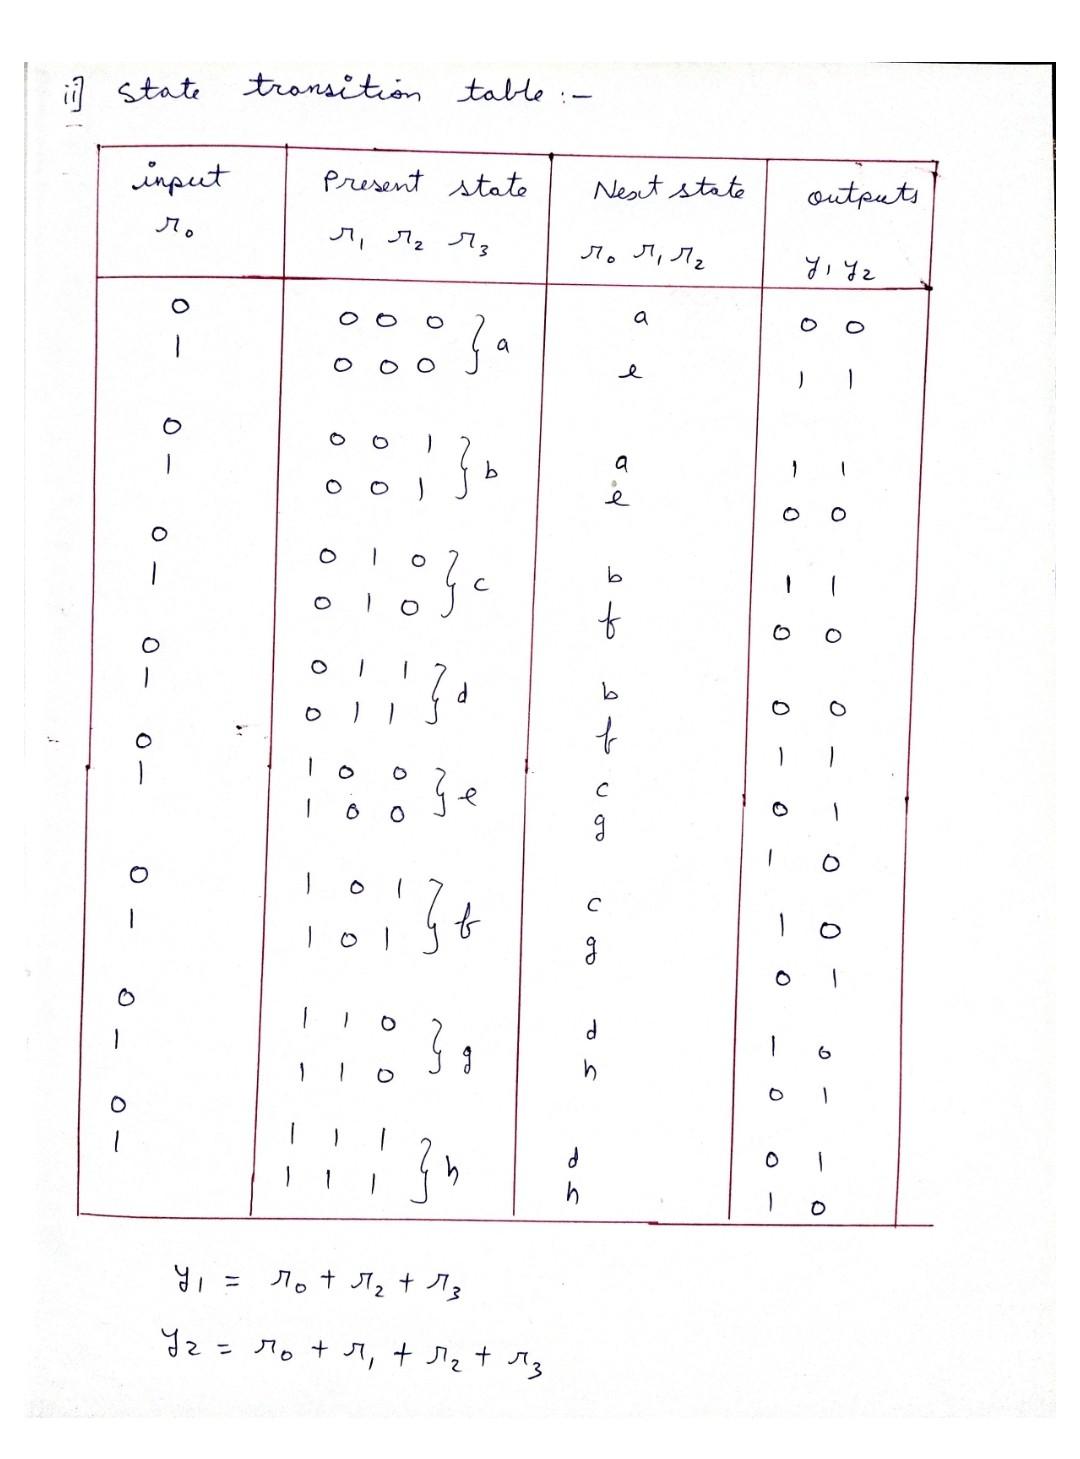 ii] State transition table :-
input Present state Next state outputs
r₀ r₁ r₂ r₃ r₀ r₁ r₂ y₁ y₂
0 0 0 0 } a a 0 0
1 0 0 0 e 1 1
0 0 0 1 } b a 1 1
1 0 0 1 e 0 0
0 0 1 0 } c b 1 1
1 0 1 0 f 0 0
0 0 1 1 } d b 0 0
1 0 1 1 f 1 1
0 1 0 0 } e c 0 1
1 1 0 0 g 1 0
0 1 0 1 } f c 1 0
1 1 0 1 g 0 1
0 1 1 0 } g d 1 0
1 1 1 0 h 0 1
0 1 1 1 } h d 0 1
1 1 1 1 h 1 0
y₁ = r₀ + r₂ + r₃
y₂ = r₀ + r₁ + r₂ + r₃